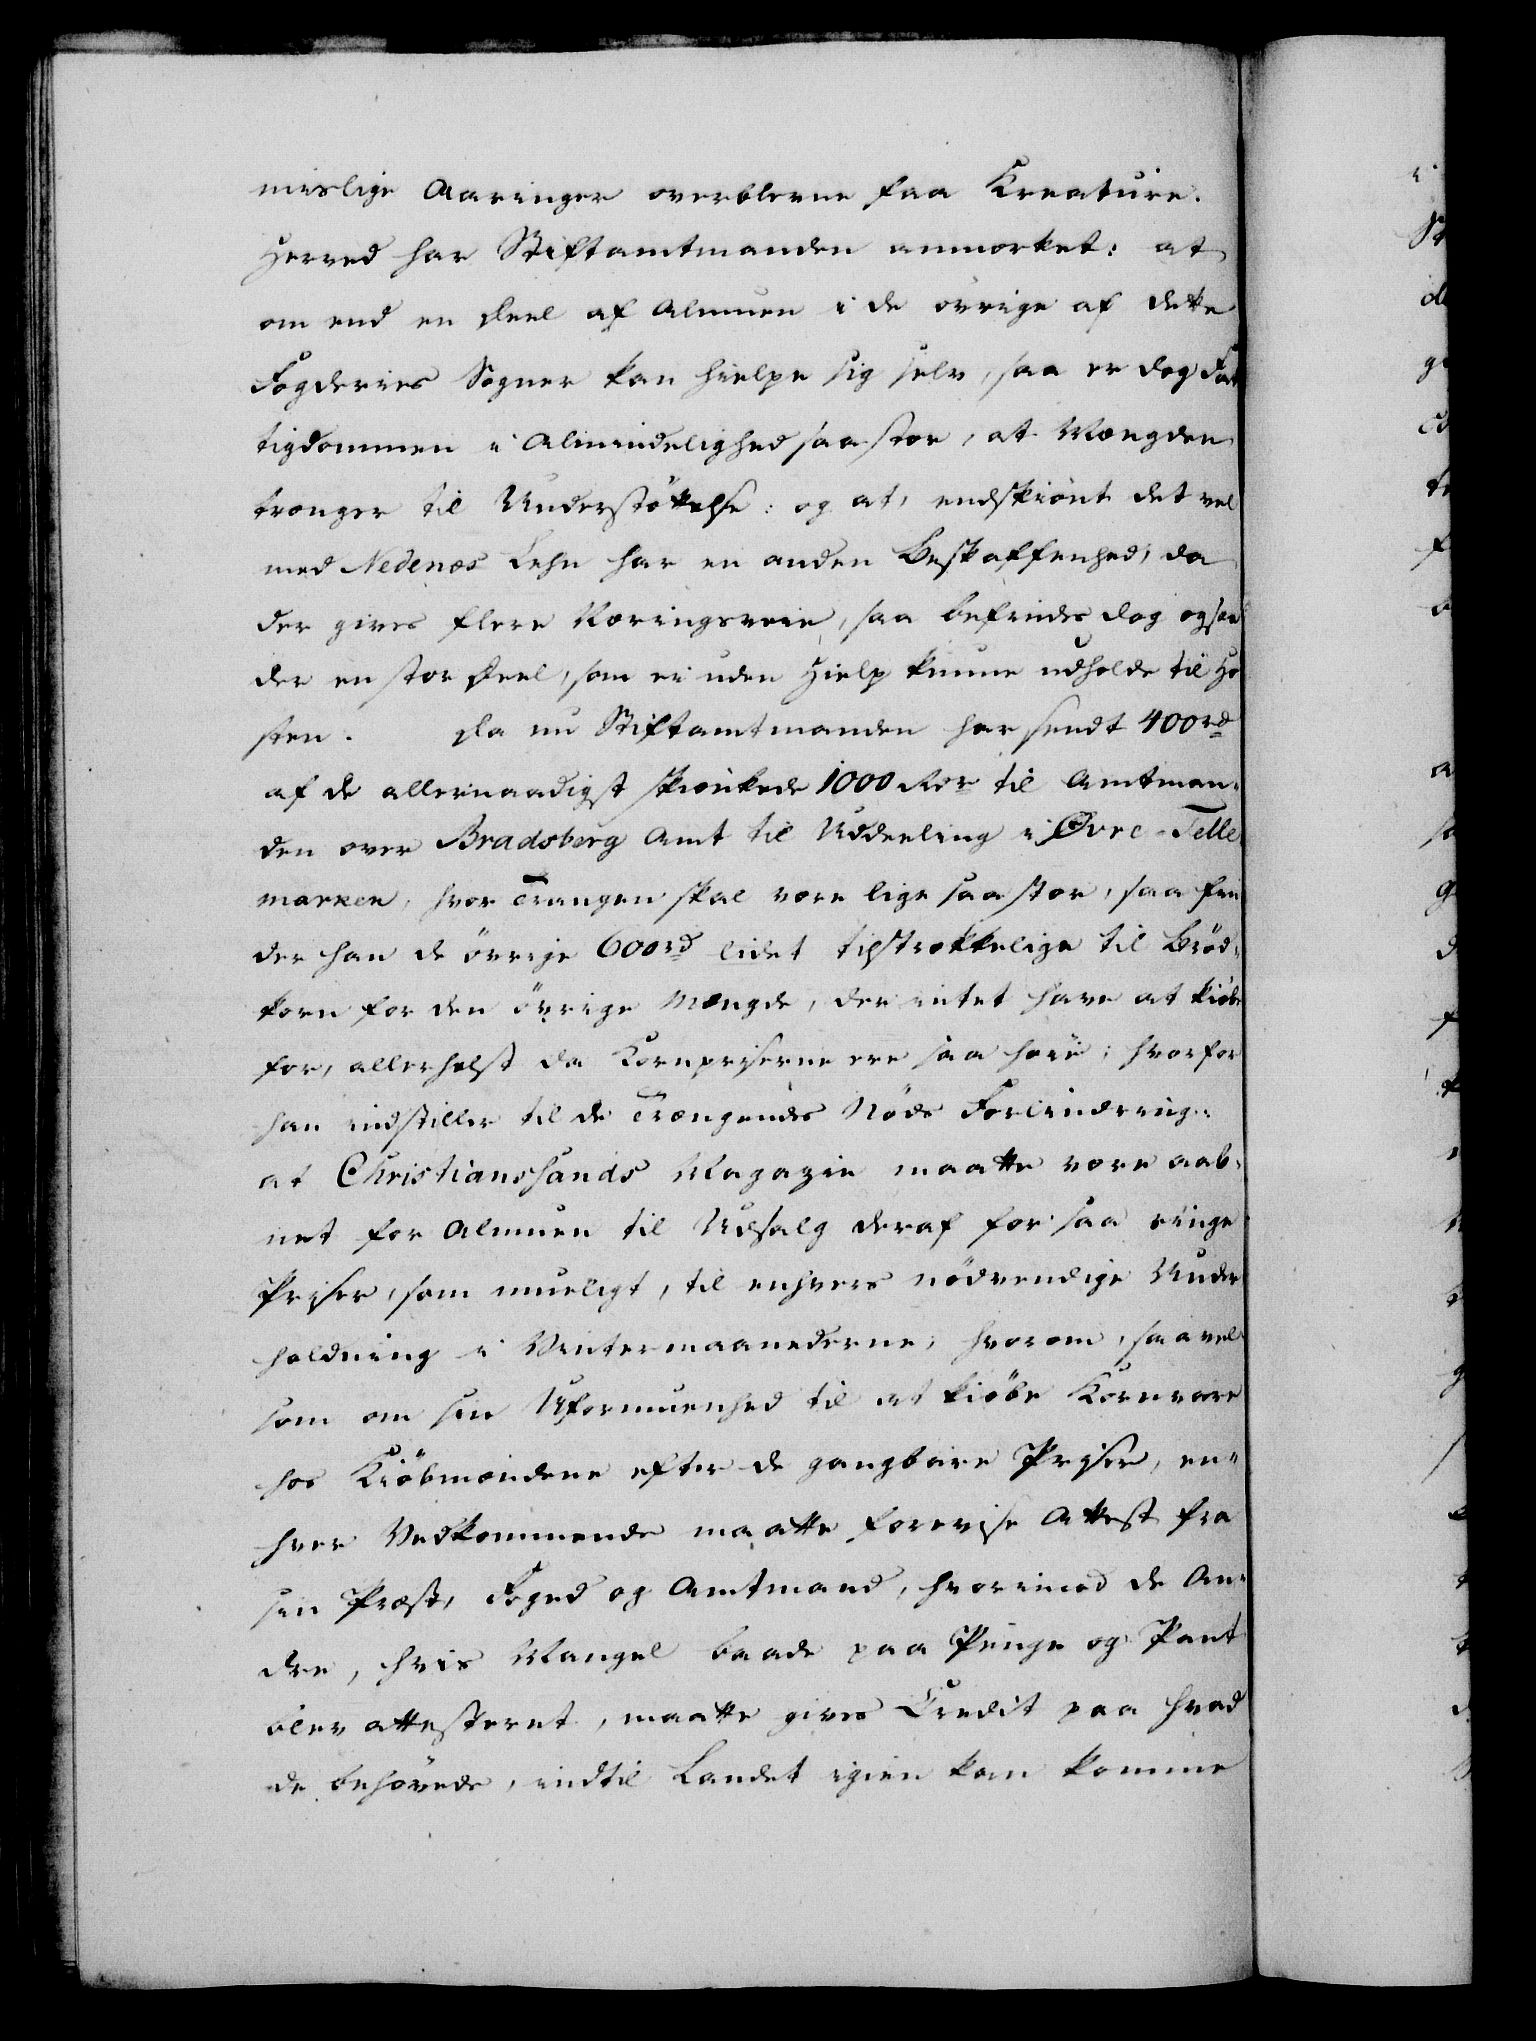 mislige Aaringer overblevne faa Kreature.
Herved har Stiftamtmanden anmærket: at
om end en Deel af Almuen i de övrige af dette
Fogderies Sogner kan hielpe sig selv, saa er dog Fat
tigdommen i Almindelighed saa stor, at Mængden
trænger til Understöttelse: og at, endskiönt det vel
med Nedenæs Lehn har en anden Beskaffenhed, da
der gives flere Næringsveie, saa befindes dog ogsaa
der en stor Deel, som ei uden Hielp kunne udholde til Hö
sten. Da nu Stiftamtmanden har sendt 400rd
af de allernaadigst skiænkede 1000 Rdr til Amtman-
den over Bradsberg Amt til Uddeeling i Øvre-Telle
marken, hvor Trangen skal være lige saa stor, saa fin
der han de övrige 600rd lidet tilstrækkelige til Bröd-
korn for den övrige Mængde, der intet have at kiöbe
for, allerhelst da Kornpriserne ere saa höie; hvorfor
han indstiller til de Trængendes Nöds Forlindring:
at Christianssands Magazin maatte være aab-
net for Almuen til Udsalg deraf for saa ringe
Priser, som mueligt, til enhvers nödvendige Under
holdning i Vintermaanederne; hvorom, saavel
som om sin Uformuenhed til at kiöbe Kornvare
hos Kiöbmændene efter de gangbare Priser, en-
hver Vedkommende maatte forevise Attest fra
sin Præst, Foged og Amtmand, hvorimod de An-
dre, hvis Mangel baade paa Penge og Pant
blev attesteret, maatte gives Credit paa hvad
de behövede, indtil Landet igien kan komme